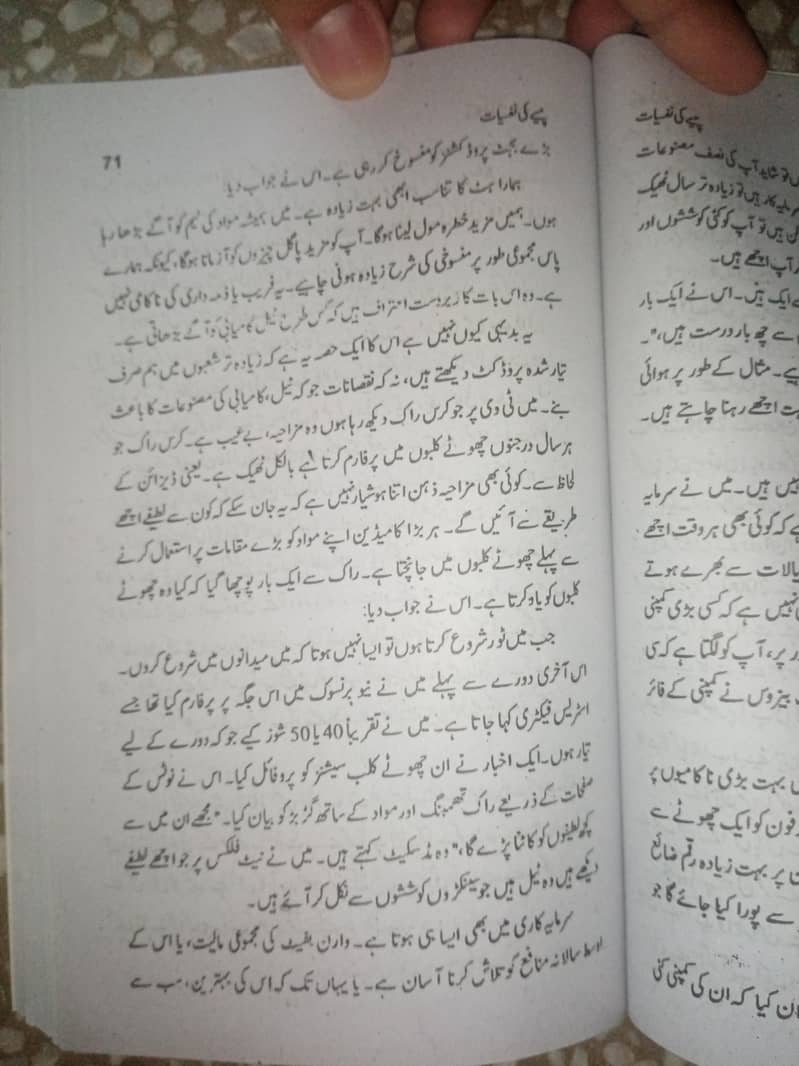 پیسے کی نفسیات
71
بڑے بجٹ پروڈکشنز کو منسوخ کر رہی ہے۔ اس نے جواب دیا:
ہمارا ہٹ کا تناسب ابھی بہت زیادہ ہے۔ میں ہمیشہ مواد کی ٹیم کو آگے بڑھا رہا
ہوں۔ ہمیں مزید خطرہ مول لینا ہوگا۔ آپ کو مزید پاگل چیزوں کو آزمانا ہوگا، کیونکہ ہمارے
پاس مجموعی طور پر منسوخی کی شرح زیادہ ہونی چاہیے۔ یہ فریب یا ذمہ داری کی ناکامی نہیں
ہے۔ وہ اس بات کا زبردست اعتراف ہیں کہ کس طرح ٹیل کامیابی کو آگے بڑھاتی ہے۔
یہ بدیہی کیوں نہیں ہے اس کا ایک حصہ یہ ہے کہ زیادہ تر شعبوں میں ہم صرف
تیار شدہ پروڈکٹ دیکھتے ہیں، نہ کہ نقصانات جو کہ ٹیل، کامیابی کی مصنوعات کا باعث
بنے۔ میں ٹی وی پر جو کرس راک دیکھ رہا ہوں وہ مزاحیہ، بے عیب ہے۔ کرس راک جو
ہر سال درجنوں چھوٹے کلبوں میں پرفارم کرتا ہے بالکل ٹھیک ہے۔ یعنی ڈیزائن کے
لحاظ سے۔ کوئی بھی مزاحیہ ذہن اتنا ہوشیار نہیں ہے کہ یہ جان سکے کہ کون سے لطیفے اچھے
طریقے سے آئیں گے۔ ہر بڑا کامیڈین اپنے مواد کو بڑے مقامات پر استعمال کرنے
سے پہلے چھوٹے کلبوں میں جانچتا ہے۔ راک سے ایک بار پوچھا گیا کہ کیا وہ چھوٹے
کلبوں کو یاد کرتا ہے۔ اس نے جواب دیا:
جب میں ٹور شروع کرتا ہوں تو ایسا نہیں ہوتا کہ میں میدانوں میں شروع کروں۔
اس آخری دورے سے پہلے میں نے نیو برنسوک میں اس جگہ پر پرفارم کیا تھا جسے
اسٹریس فیکٹری کہا جاتا ہے۔ میں نے تقریباً 40 یا 50 شوز کیے جو کہ دورے کے لیے
تیار ہوں۔ ایک اخبار نے ان چھوٹے کلب سیشنز کو پروفائل کیا۔ اس نے نوٹس کے
صفحات کے ذریعے راک تھمبنگ اور مواد کے ساتھ گڑبڑ کو بیان کیا۔ "مجھے ان میں سے
کچھ لطیفوں کو کاٹنا پڑے گا،" وہ مڈ سکیٹ کہتے ہیں۔ میں نے نیٹ فلکس پر جو اچھے لطیفے
دیکھے ہیں وہ ٹیل ہیں جو سینکڑوں کوششوں سے نکل کر آئے ہیں۔
سرمایہ کاری میں بھی ایسا ہی ہوتا ہے۔ وارن بفیٹ کی مجموعی مالیت، یا اس کے
اوسط سالانہ منافع کو تلاش کرنا آسان ہے۔ یا یہاں تک کہ اس کی بہترین، سب سے
پیسے کی نفسیات
تو شاید آپ کی نصف مصنوعات
ہیں تو زیادہ تر سال ٹھیک
ہیں تو آپ کو کئی کوششوں اور
آپ اچھے ہیں۔
ایک ہیں۔ اس نے ایک بار
سے چھ بار درست ہیں،"۔
مثال کے طور پر ہوائی
اچھے رہنا چاہتے ہیں۔
ہیں۔ میں نے سرمایہ
ہے کہ کوئی بھی ہر وقت اچھے
سے بھرے ہوتے
نہیں ہے کہ کسی بڑی کمپنی
پر، آپ کو لگتا ہے کہ ی
بیزوس نے کمپنی کے فائر
بہت بڑی ناکامیوں پر
فون کو ایک چھوٹے سے
پر بہت زیادہ رقم ضائع
سے پورا کیا جائے گا جو
کیا کہ ان کی کمپنی کئی